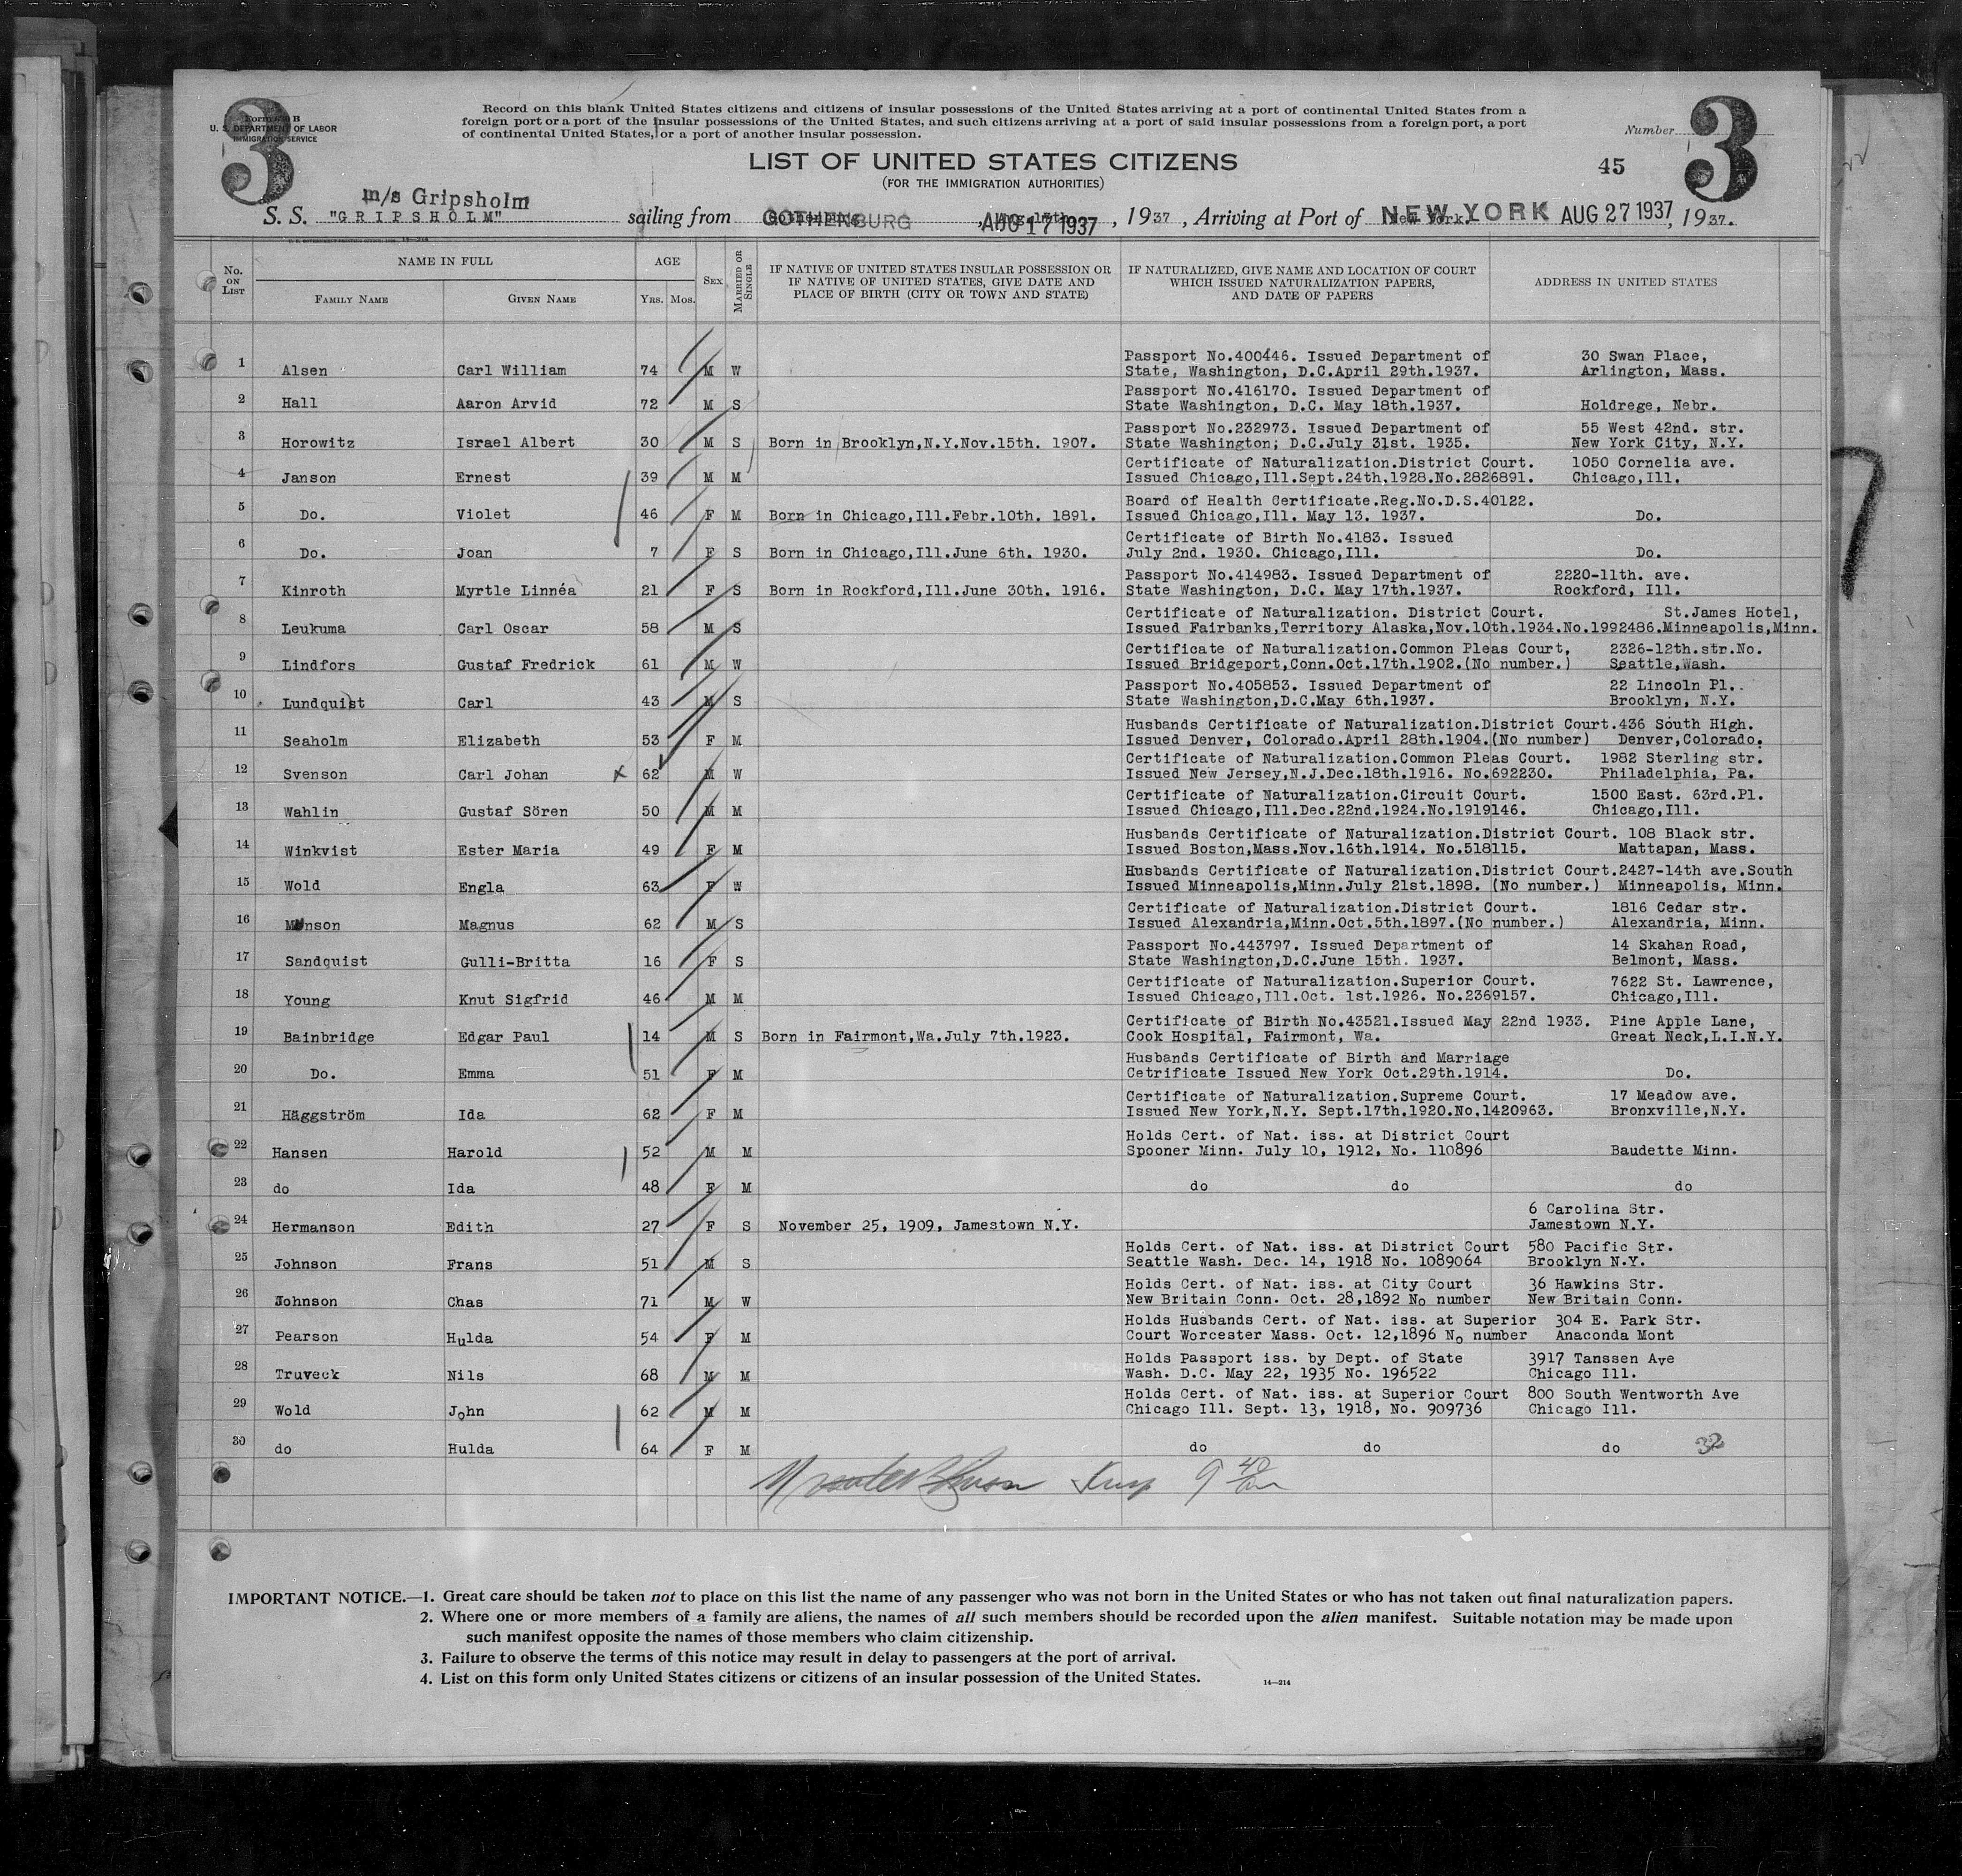 3
3
Form 630 B
U. S. DEPARTMENT OF LABOR
IMMIGRATION SERVICE
Record on this blank United States citizens and citizens of insular possessions of the United States arriving at a port of continental United States from a
foreign port or a port of the insular possessions of the United States, and such citizens arriving at a port of said insular possessions from a foreign port, a port
of continental United States, or a port of another insular possession.
Number
LIST OF UNITED STATES CITIZENS
45
(FOR THE IMMIGRATION AUTHORITIES)
m/s Gripsholm
S. S. "GRIPSHOLM" sailing from GOTHENBURG, AUG 17 1937, 1937, Arriving at Port of NEW YORK AUG 27 1937, 1937.
No. ON LIST
NAME IN FULL
FAMILY NAME
GIVEN NAME
AGE
YRS. MOS.
SEX
MARRIED OR SINGLE
IF NATIVE OF UNITED STATES INSULAR POSSESSION OR
IF NATIVE OF UNITED STATES, GIVE DATE AND
PLACE OF BIRTH (CITY OR TOWN AND STATE)
IF NATURALIZED, GIVE NAME AND LOCATION OF COURT
WHICH ISSUED NATURALIZATION PAPERS,
AND DATE OF PAPERS
ADDRESS IN UNITED STATES
Passport No.400446. Issued Department of 30 Swan Place,
1 Alsen Carl William 74 M W State, Washington, D.C.April 29th.1937. Arlington, Mass.
Passport No.416170. Issued Department of
2 Hall Aaron Arvid 72 M S State Washington, D.C. May 18th.1937. Holdrege, Nebr.
Passport No.232973. Issued Department of 55 West 42nd. str.
3 Horowitz Israel Albert 30 M S Born in Brooklyn,N.Y.Nov.15th. 1907. State Washington; D.C.July 31st. 1935. New York City, N.Y.
Certificate of Naturalization.District Court. 1050 Cornelia ave.
4 Janson Ernest 39 M M Issued Chicago,Ill.Sept.24th.1928.No.2826891. Chicago,Ill.
Board of Health Certificate.Reg.No.D.S.40122.
5 Do. Violet 46 F M Born in Chicago,Ill.Febr.10th. 1891. Issued Chicago,Ill. May 13. 1937. Do.
Certificate of Birth No.4183. Issued
6 Do. Joan 7 F S Born in Chicago,Ill.June 6th. 1930. July 2nd. 1930. Chicago,Ill. Do.
Passport No.414983. Issued Department of 2220-11th. ave.
7 Kinroth Myrtle Linnéa 21 F S Born in Rockford,Ill.June 30th. 1916. State Washington, D.C. May 17th.1937. Rockford, Ill.
Certificate of Naturalization. District Court. St.James Hotel,
8 Leukuma Carl Oscar 58 M S Issued Fairbanks,Territory Alaska,Nov.10th.1934.No.1992486.Minneapolis,Minn.
Certificate of Naturalization.Common Pleas Court, 2326-12th.str.No.
9 Lindfors Gustaf Fredrick 61 M W Issued Bridgeport,Conn.Oct.17th.1902.(No number.) Seattle,Wash.
Passport No.405853. Issued Department of 22 Lincoln Pl..
10 Lundquist Carl 43 M S State Washington,D.C.May 6th.1937. Brooklyn, N.Y.
Husbands Certificate of Naturalization.District Court.436 South High.
11 Seaholm Elizabeth 53 F M Issued Denver, Colorado.April 28th.1904.(No number) Denver,Colorado.
Certificate of Naturalization.Common Pleas Court. 1982 Sterling str.
12 Svenson Carl Johan x 62 M W Issued New Jersey,N.J.Dec.18th.1916. No.692230. Philadelphia, Pa.
Certificate of Naturalization.Circuit Court. 1500 East. 63rd.Pl.
13 Wahlin Gustaf Sören 50 M M Issued Chicago,Ill.Dec.22nd.1924.No.1919146. Chicago,Ill.
Husbands Certificate of Naturalization.District Court. 108 Black str.
14 Winkvist Ester Maria 49 F M Issued Boston,Mass.Nov.16th.1914. No.518115. Mattapan, Mass.
Husbands Certificate of Naturalization.District Court.2427-14th ave.South
15 Wold Engla 63 F W Issued Minneapolis,Minn.July 21st.1898. (No number.) Minneapolis, Minn.
Certificate of Naturalization.District Court. 1816 Cedar str.
16 Magnus 62 M S Issued Alexandria,Minn.Oct.5th.1897.(No number.) Alexandria, Minn.
Passport No.443797. Issued Department of 14 Skahan Road,
17 Sandquist Gulli-Britta 16 F S State Washington,D.C.June 15th. 1937. Belmont, Mass.
Certificate of Naturalization.Superior Court. 7622 St. Lawrence,
18 Young Knut Sigfrid 46 M M Issued Chicago,Ill.Oct. 1st.1926. No.2369157. Chicago,Ill.
Certificate of Birth No.43521.Issued May 22nd 1933. Pine Apple Lane,
19 Bainbridge Edgar Paul 14 M S Born in Fairmont,Wa.July 7th.1923. Cook Hospital, Fairmont, Wa. Great Neck,L.I.N.Y.
Husbands Certificate of Birth and Marriage
20 Do. Emma 51 F M Cetrificate Issued New York Oct.29th.1914. Do.
Certificate of Naturalization.Supreme Court. 17 Meadow ave.
21 Häggström Ida 62 F M Issued New York,N.Y. Sept.17th.1920.No.1420963. Bronxville,N.Y.
Holds Cert. of Nat. iss. at District Court
22 Hansen Harold 52 M M Spooner Minn. July 10, 1912, No. 110896 Baudette Minn.
23 do Ida 48 F M do do do
6 Carolina Str.
24 Hermanson Edith 27 F S November 25, 1909, Jamestown N.Y. Jamestown N.Y.
Holds Cert. of Nat. iss. at District Court 580 Pacific Str.
25 Johnson Frans 51 M S Seattle Wash. Dec. 14, 1918 No. 1089064 Brooklyn N.Y.
Holds Cert. of Nat. iss. at City Court 36 Hawkins Str.
26 Johnson Chas 71 M W New Britain Conn. Oct. 28,1892 No number New Britain Conn.
Holds Husbands Cert. of Nat. iss. at Superior 304 E. Park Str.
27 Pearson Hulda 54 F M Court Worcester Mass. Oct. 12,1896 No number Anaconda Mont
Holds Passport iss. by Dept. of State 3917 Tanssen Ave
28 Truveck Nils 68 M M Wash. D.C. May 22, 1935 No. 196522 Chicago Ill.
Holds Cert. of Nat. iss. at Superior Court 800 South Wentworth Ave
29 Wold John 62 M M Chicago Ill. Sept. 13, 1918, No. 909736 Chicago Ill.
30 do Hulda 64 F M do do do 32
IMPORTANT NOTICE.—1. Great care should be taken not to place on this list the name of any passenger who was not born in the United States or who has not taken out final naturalization papers.
2. Where one or more members of a family are aliens, the names of all such members should be recorded upon the alien manifest. Suitable notation may be made upon
such manifest opposite the names of those members who claim citizenship.
3. Failure to observe the terms of this notice may result in delay to passengers at the port of arrival.
4. List on this form only United States citizens or citizens of an insular possession of the United States.
14—214